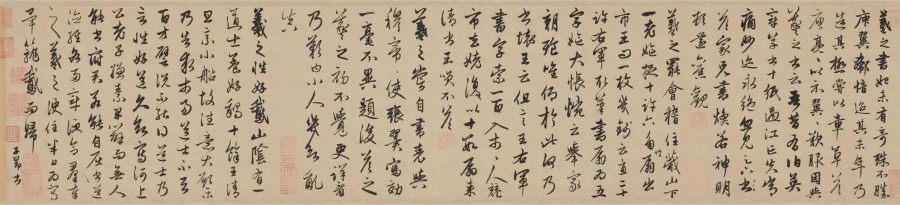 羲之書初未有奇殊不勝
庾翼郗愔迨其末年乃
造其極嘗以章草答
庾亮亮以示翼歎服因與
羲之書云吾昔有伯英
章草書十紙過江亡失常
痛妙迹永絕忽見足下書
答家兄書煥若神明
頓還舊觀
羲之罷會稽住蕺山下
一老嫗捉十許六角扇出
市王問一枚幾錢云直二十
許右軍取筆書扇為五
字嫗大悵惋云舉家
朝飡惟仰於此何乃
書壞王云但言王右軍
書字索一百入市市人競
市去姥復以十數扇來
請書王笑不答
羲之嘗自書表與
穆帝帝使張翼寫効
一毫不異題後答之
羲之初不覺更詳看
乃歎曰小人幾欲亂
真
羲之性好鵝山陰有一
道士養好鵝十餘王清
旦乘小船故往意大願樂
乃告求市易道士不與
百方譬說不能得之道士乃
言性好道久欲寫河上
公老子縑素早辦而無人
能書府君若能自屈書道
德經各兩章便合群奉
之羲之便住半日為寫
畢籠鵝而歸
子昂書